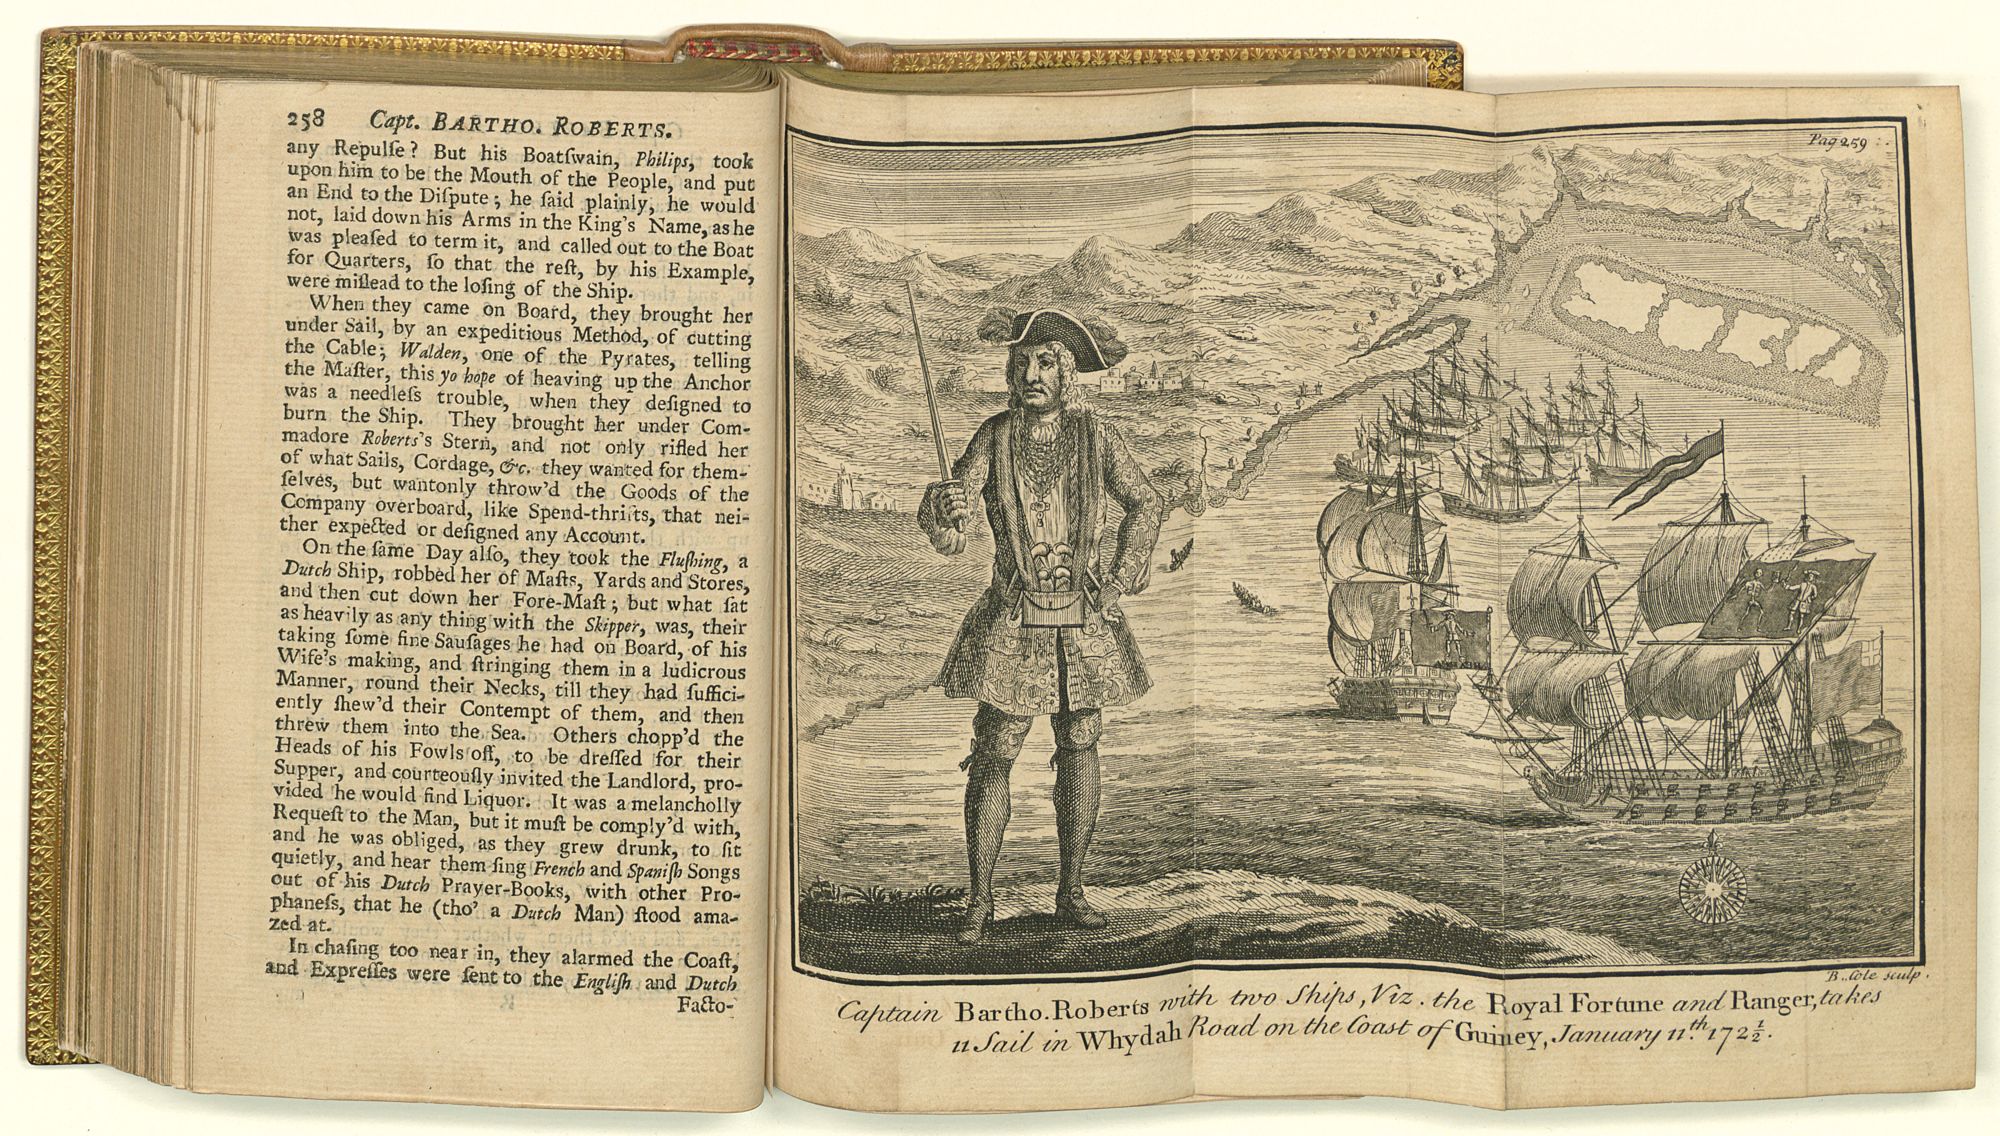 258 Capt. BARTHO. ROBERTS.
any Repulſe? But his Boatſwain, Philips, took
upon him to be the Mouth of the People, and put
an End to the Diſpute; he ſaid plainly, he would
not, laid down his Arms in the King's Name, as he
was pleaſed to term it, and called out to the Boat
for Quarters, ſo that the reſt, by his Example,
were miſlead to the loſing of the Ship.
When they came on Board, they brought her
under Sail, by an expeditious Method, of cutting
the Cable; Walden, one of the Pyrates, telling
the Maſter, this yo hope of heaving up the Anchor
was a needleſs trouble, when they deſigned to
burn the Ship. They brought her under Com-
madore Roberts's Stern, and not only rifled her
of what Sails, Cordage, &c. they wanted for them-
ſelves, but wantonly throw'd the Goods of the
Company overboard, like Spend-thrifts, that nei-
ther expected or deſigned any Account.
On the ſame Day alſo, they took the Fluſhing, a
Dutch Ship, robbed her of Maſts, Yards and Stores,
and then cut down her Fore-Maſt; but what ſat
as heavily as any thing with the Skipper, was, their
taking ſome fine Sauſages he had on Board, of his
Wife's making, and ſtringing them in a ludicrous
Manner, round their Necks, till they had ſuffici-
ently ſhew'd their Contempt of them, and then
threw them into the Sea. Others chopp'd the
Heads of his Fowls off, to be dreſſed for their
Supper, and courteouſly invited the Landlord, pro-
vided he would find Liquor. It was a melancholly
Requeſt to the Man, but it muſt be comply'd with,
and he was obliged, as they grew drunk, to ſit
quietly, and hear them ſing French and Spaniſh Songs
out of his Dutch Prayer-Books, with other Pro-
phaneſs, that he (tho' a Dutch Man) ſtood ama-
zed at.
In chaſing too near in, they alarmed the Coaſt,
and Expreſſes were ſent to the Engliſh and Dutch
Facto-
Pag 259
B. Cole sculp.
Captain Bartho. Roberts with two Ships, Viz. the Royal Fortune and Ranger, takes
11 Sail in Whydah Road on the Coast of Guiney, January 11th. 172½.